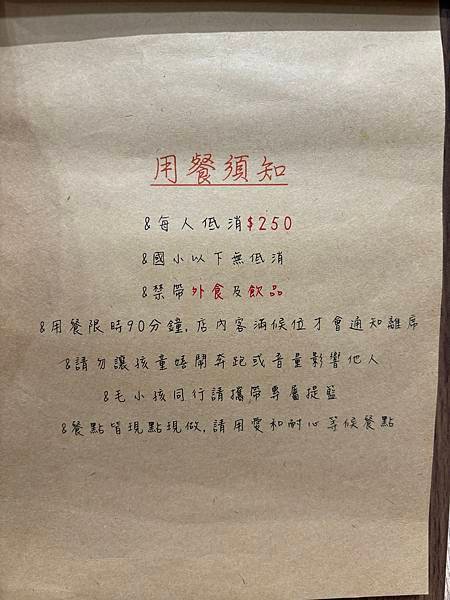 用餐須知
&每人低消$250
&國小以下無低消
&禁帶外食及飲品
&用餐限時90分鐘,店內客滿候位才會通知離席
&請勿讓孩童嬉鬧奔跑或音量影響他人
&毛小孩同行請攜帶專屬提籃
&餐點皆現點現做,請用愛和耐心等候餐點